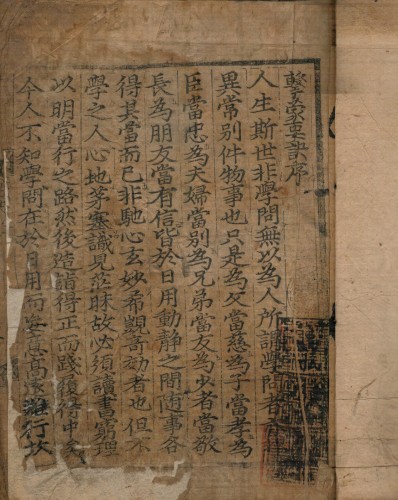 擊蒙要訣序
人生斯世非學問無以爲人所謂學問者
異常別件物事也只是爲父當慈爲子當孝爲
臣當忠爲夫婦當別爲兄弟當友爲少者當敬
長爲朋友當有信皆於日用動靜之間随事各
得其當而已非馳心玄妙希覬奇効者也但不
學之人心地茅塞識見茫昧故必須讀書窮理
以明當行之路然後造詣得正而踐履得中矣
今人不知學問在於日用而妄意高遠難行故